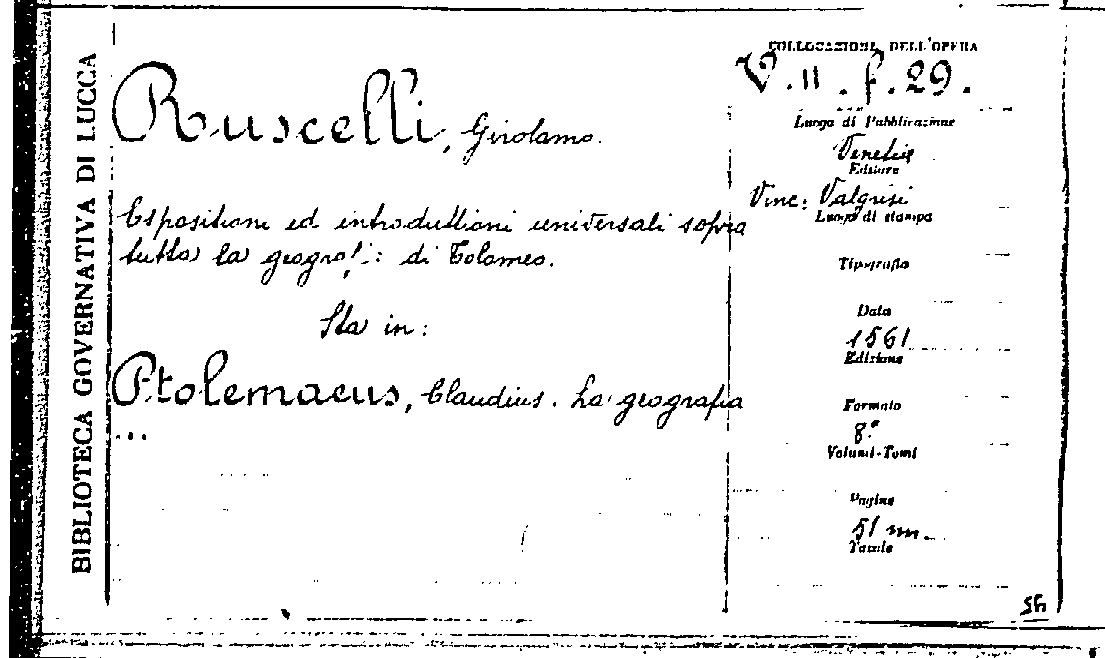 BIBLIOTECA GOVERNATIVA DI LUCCA
Ruscelli, Girolamo.
Espositioni ed introduttioni universali sopra
tutta la geograf: di Tolomeo.
Sta in:
Ptolemaeus, Claudius. La geografia
...
COLLOCAZIONE DELL'OPERA
V. II. f. 29.
Luogo di Pubblicazione
Venetia
Editore
Vinc: Valgrisi
Luogo di stampa
Tipografia
Data
1561
Edizione
Formato
8°
Volumi-Tomi
Pagine
51 nn.
Tavole